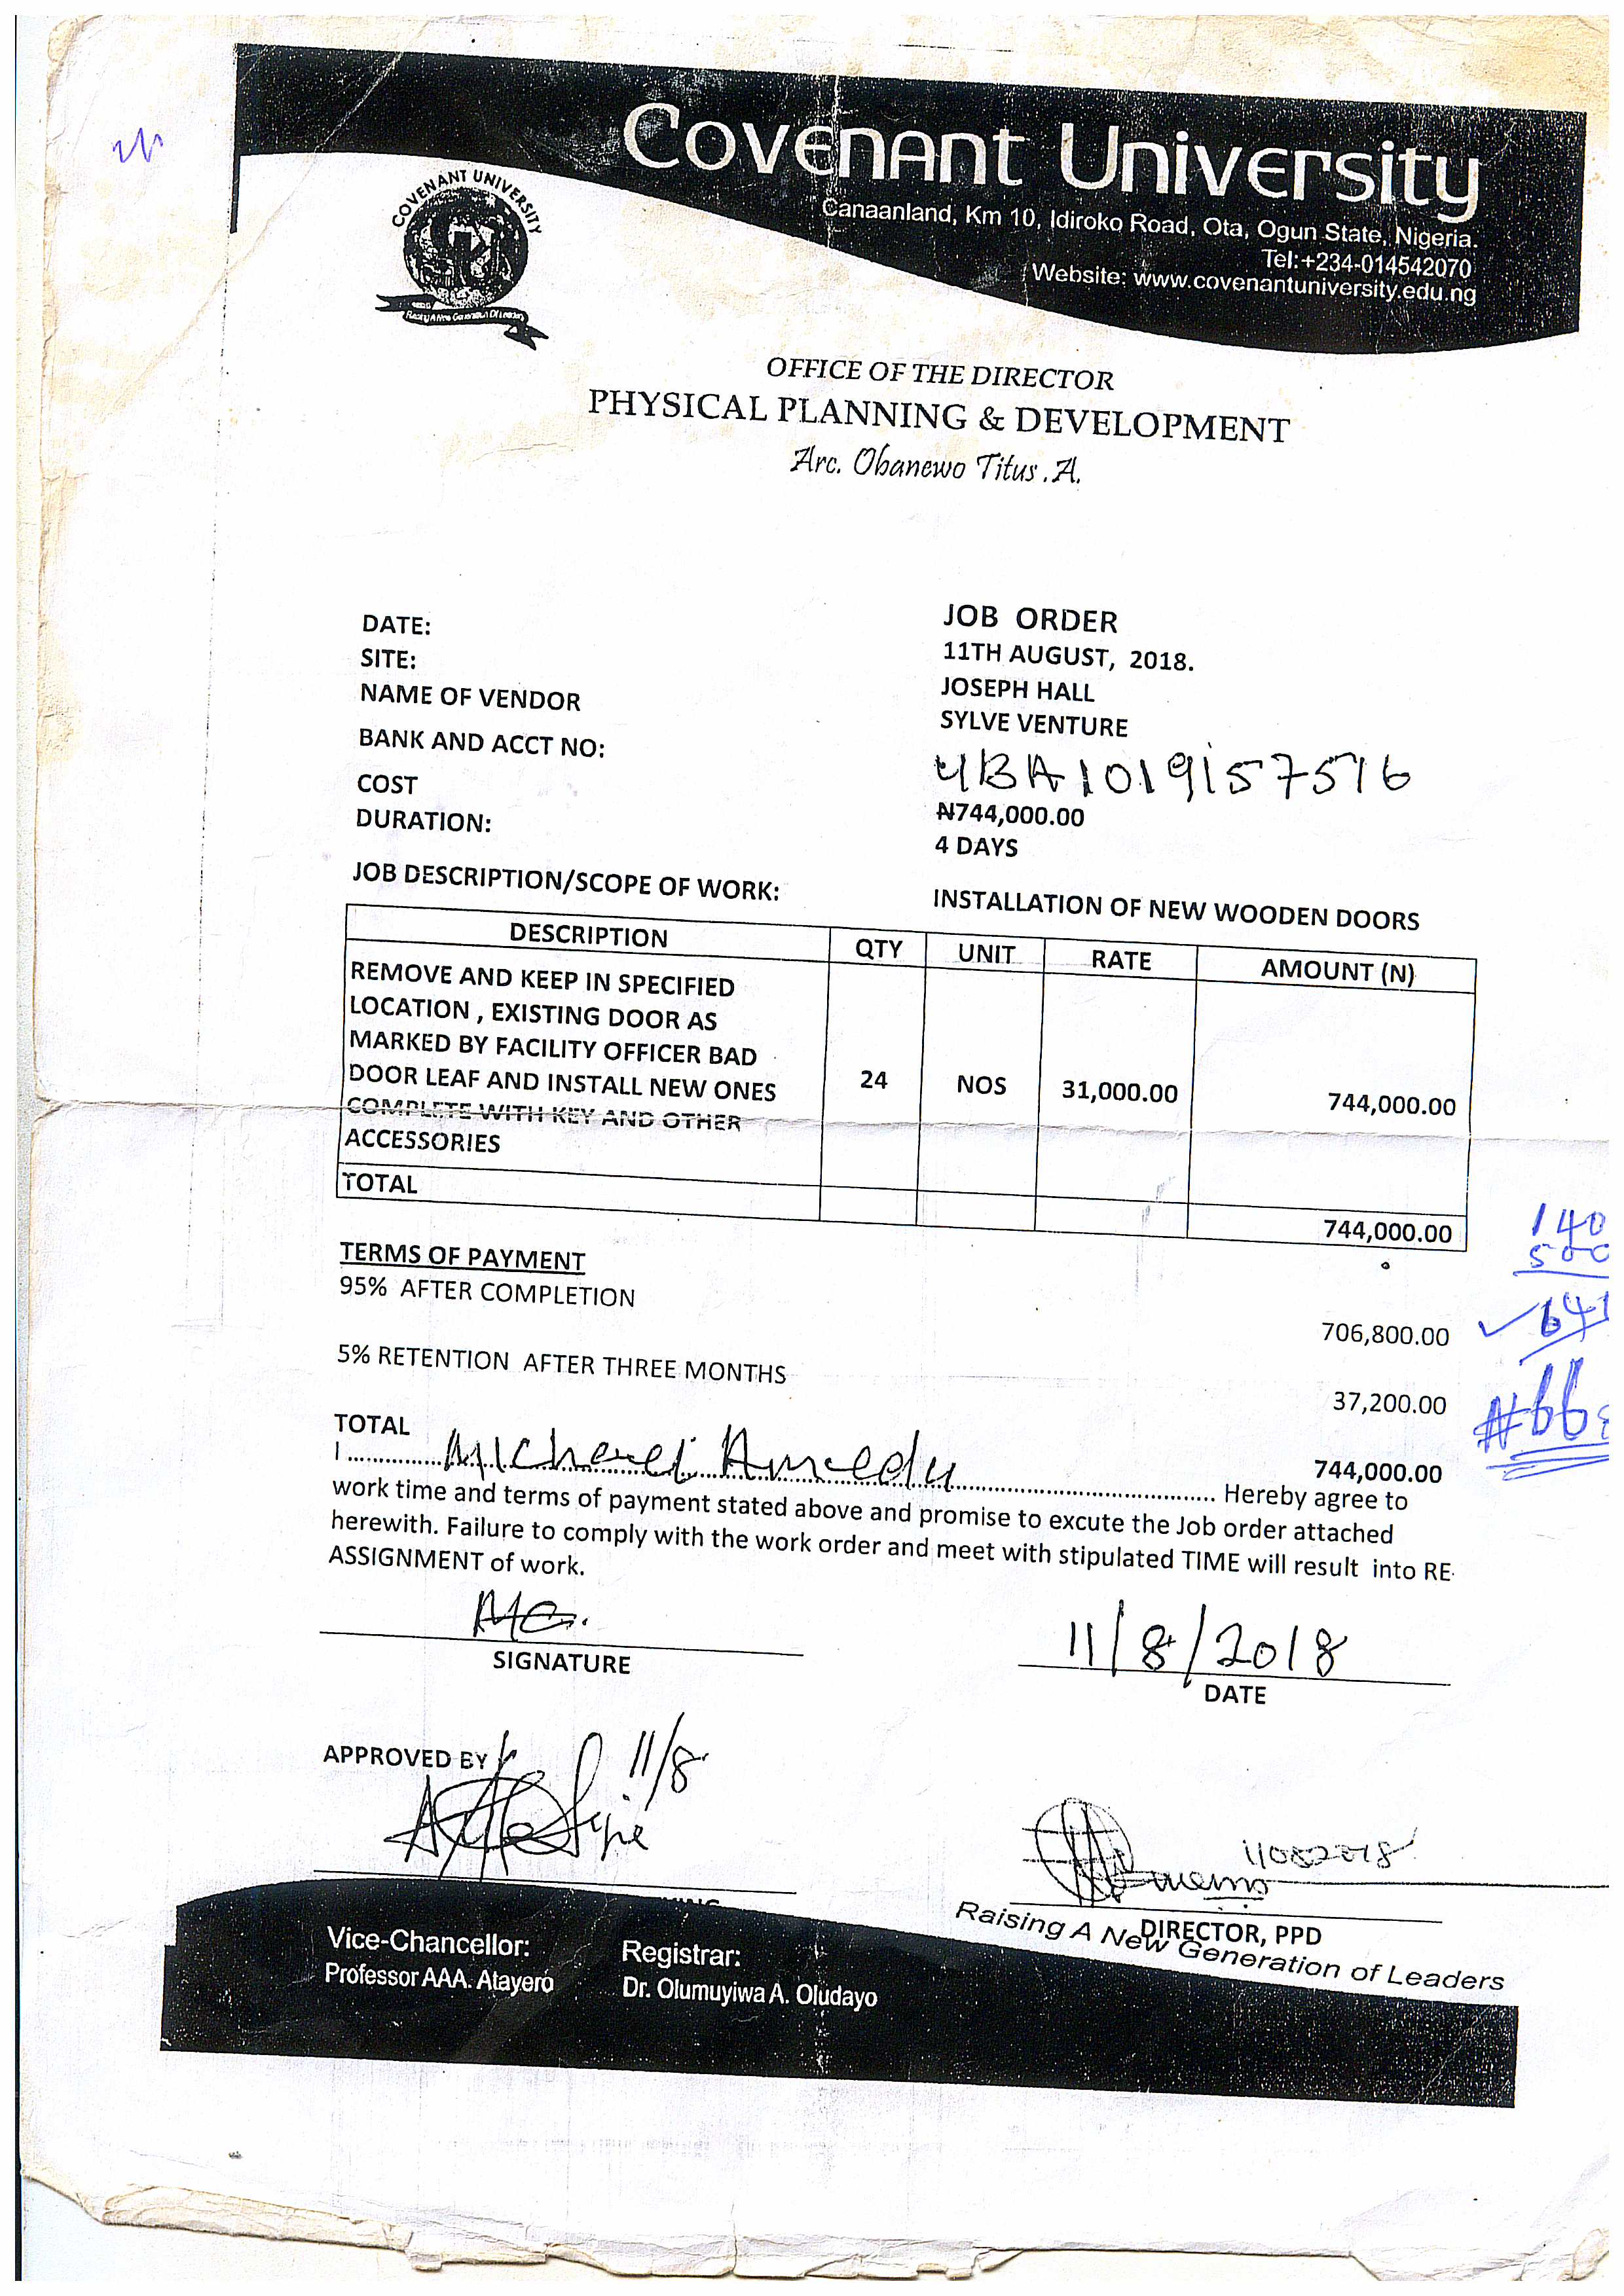 Covenant University
Canaanland, Km 10, Idiroko Road, Ota, Ogun State, Nigeria.
Tel:+234-014542070
Website: www.covenantuniversity.edu.ng
COVENANT UNIVERSITY
OFFICE OF THE DIRECTOR
PHYSICAL PLANNING & DEVELOPMENT
Arc. Obanewo Titus .A.
JOB ORDER
DATE: 11TH AUGUST, 2018.
SITE: JOSEPH HALL
NAME OF VENDOR SYLVE VENTURE
BANK AND ACCT NO: UBA 1019157516
COST ₦744,000.00
DURATION: 4 DAYS
JOB DESCRIPTION/SCOPE OF WORK: INSTALLATION OF NEW WOODEN DOORS
DESCRIPTION QTY UNIT RATE AMOUNT (N)
REMOVE AND KEEP IN SPECIFIED
LOCATION , EXISTING DOOR AS
MARKED BY FACILITY OFFICER BAD
DOOR LEAF AND INSTALL NEW ONES 24 NOS 31,000.00 744,000.00
COMPLETE WITH KEY AND OTHER
ACCESSORIES
TOTAL 744,000.00
140
500
TERMS OF PAYMENT
95% AFTER COMPLETION 706,800.00
5% RETENTION AFTER THREE MONTHS 37,200.00
TOTAL 744,000.00
I Michael Amedu Hereby agree to
work time and terms of payment stated above and promise to excute the Job order attached
herewith. Failure to comply with the work order and meet with stipulated TIME will result into RE-
ASSIGNMENT of work.
11/8/2018
SIGNATURE DATE
APPROVED BY 11/8
11082018
DIRECTOR, PPD
Raising A New Generation of Leaders
Vice-Chancellor: Registrar:
Professor AAA. Atayero Dr. Olumuyiwa A. Oludayo